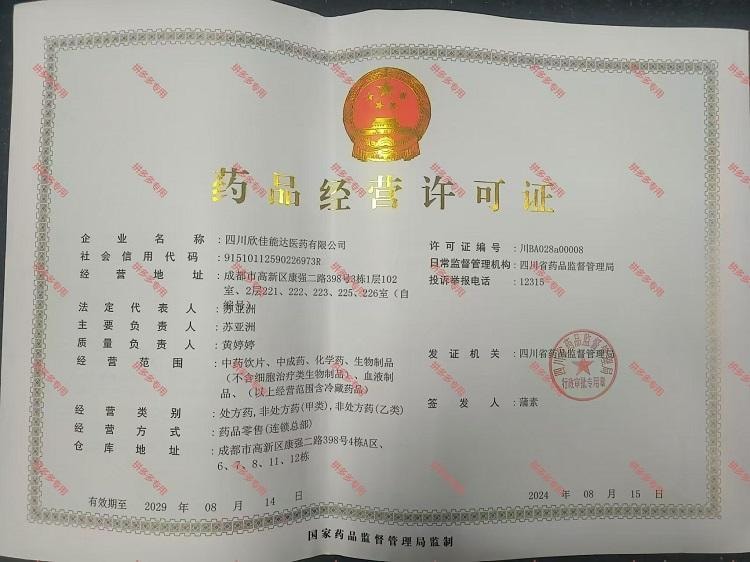 药品经营许可证
企业名称：四川欣佳能达医药有限公司
社会信用代码：91510112590226973R
经营地址：成都市高新区康强二路398号3栋1层102
室、2层221、222、223、225、226室（自
编号）
法定代表人：苏亚洲
主要负责人：苏亚洲
质量负责人：黄婷婷
经营范围：中药饮片、中成药、化学药、生物制品
（不含细胞治疗类生物制品）、血液制
品、（以上经营范围含冷藏药品）
经营类别：处方药,非处方药(甲类),非处方药(乙类)
经营方式：药品零售(连锁总部)
仓库地址：成都市高新区康强二路398号4栋A区、
6、7、8、11、12栋
有效期至 2029 年 08 月 14 日
许可证编号：川BA028a00008
日常监督管理机构：四川省药品监督管理局
投诉举报电话：12315
发证机关：四川省药品监督管理局
四川省药品监督管理局
行政审批专用章
签发人：蒲素
2024 年 08 月 15 日
国家药品监督管理局监制
拼多多专用